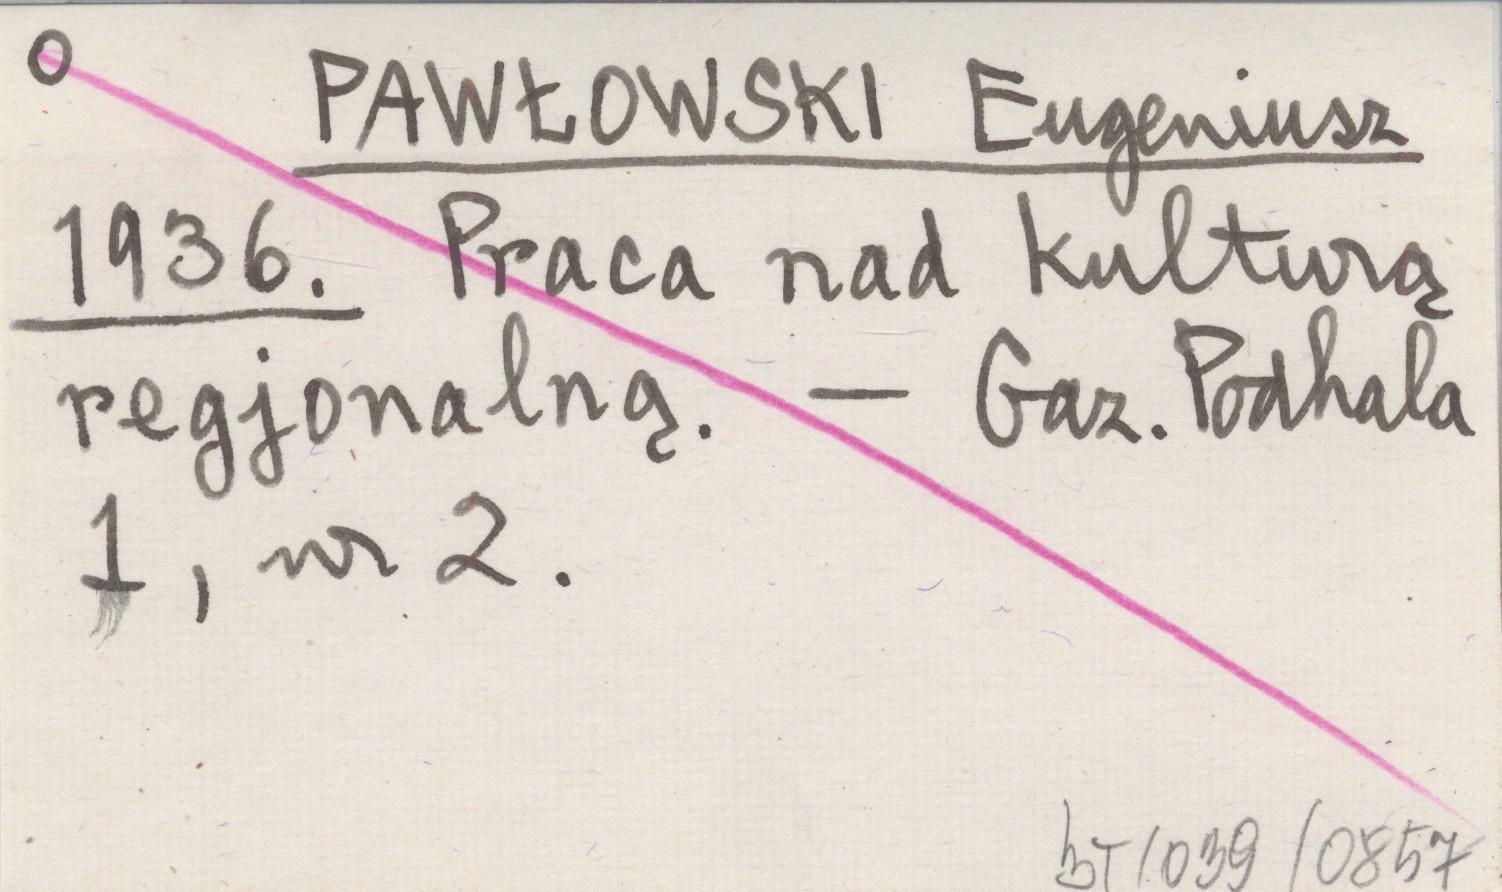 O
PAWŁOWSKI Eugeniusz
1936. Praca nad kulturą
regjonalną. — Gaz. Podhala
1, nr 2.
BT/039/0857